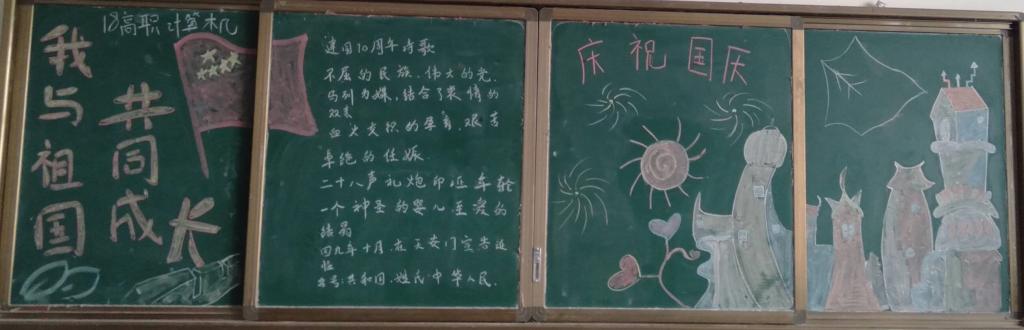 18高职计算机
我与祖国
共同成长
建国10周年诗歌
不屈的民族、伟大的党.
马列为媒,结合了衷情的
双亲
血火交织的孕育.艰苦
卓绝的任娠
二十八声礼炮印证年轮
一个神圣的婴儿至爱的
结局
四九年十月.在天安门宣告返
临
名号:共和国.姓氏:中华人民.
庆祝国庆